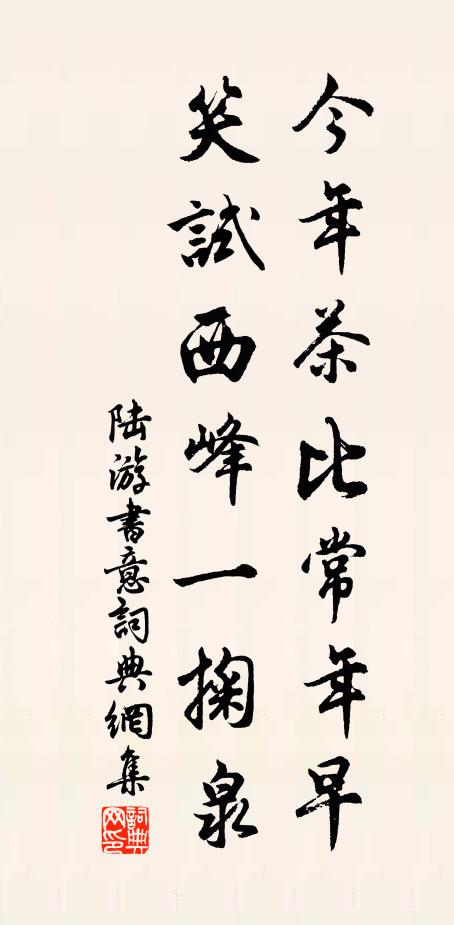 今年茶比常年早
笑試西峰一掬泉
陆游書意詞典網集
詞典網印